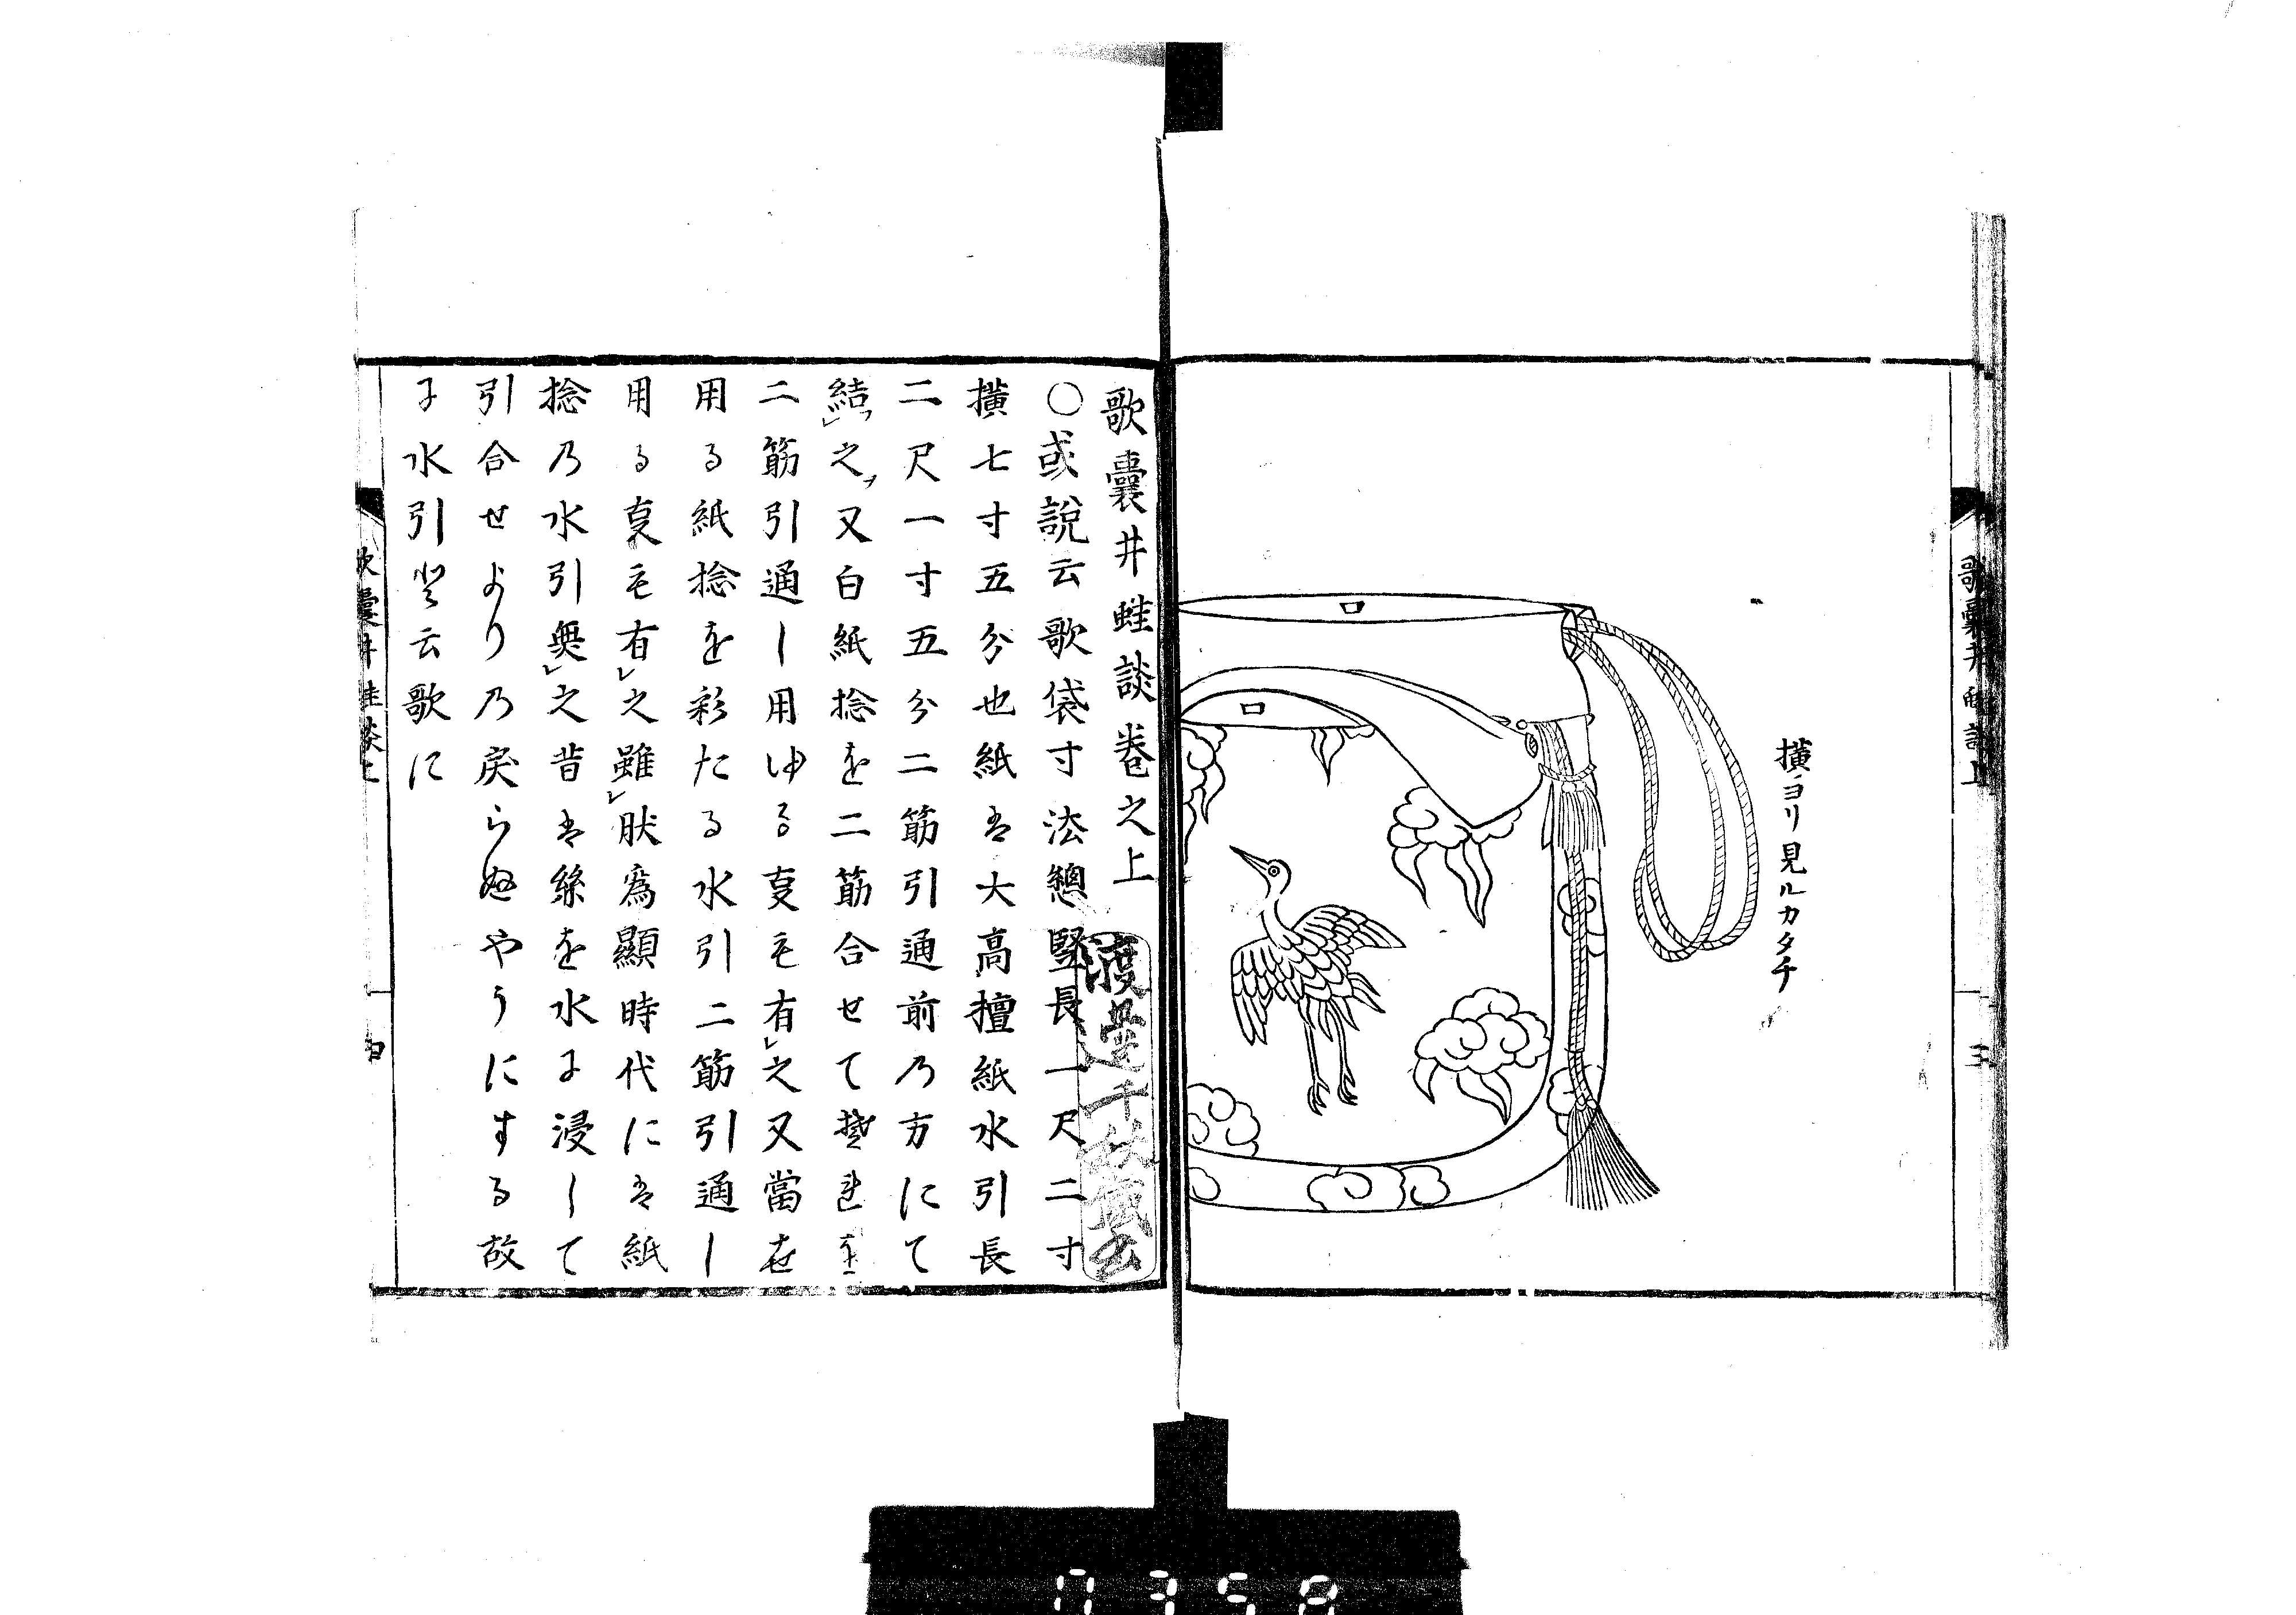 歌囊井蛙談上
三
横ヨリ見ルカタチ
口
口
歌囊井蛙談卷之上
○或說云歌袋寸法總竪長一尺二寸
横七寸五分也紙ハ大高檀紙水引長
二尺一寸五分二筋引通前乃方にて
結レ之又白紙捻を二筋合せて
二筋引通し用ゆる叓も有レ之又當世
用る紙捻を彩たる水引二筋引通し
用る叓も有レ之雖レ然爲顯時代にハ紙
捻乃水引無レ之昔ハ絲を水に浸して
引合せより乃戻らぬやうにする故
に水引と云歌に
歌囊井蛙談上
四